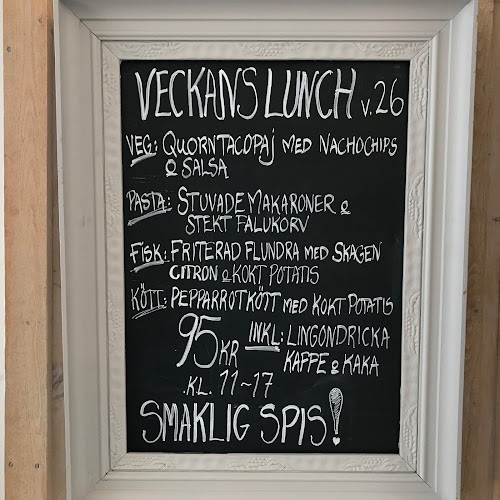 VECKANS LUNCH v.26
VEG: QUORNTACOPAJ MED NACHOCHIPS
& SALSA
PASTA: STUVADE MAKARONER &
STEKT FALUKORV
FISK: FRITERAD FLUNDRA MED SKAGEN
CITRON & KOKT POTATIS
KÖTT: PEPPARROTKÖTT MED KOKT POTATIS
95 KR INKL: LINGONDRICKA
KAFFE & KAKA
KL. 11-17
SMAKLIG SPIS!